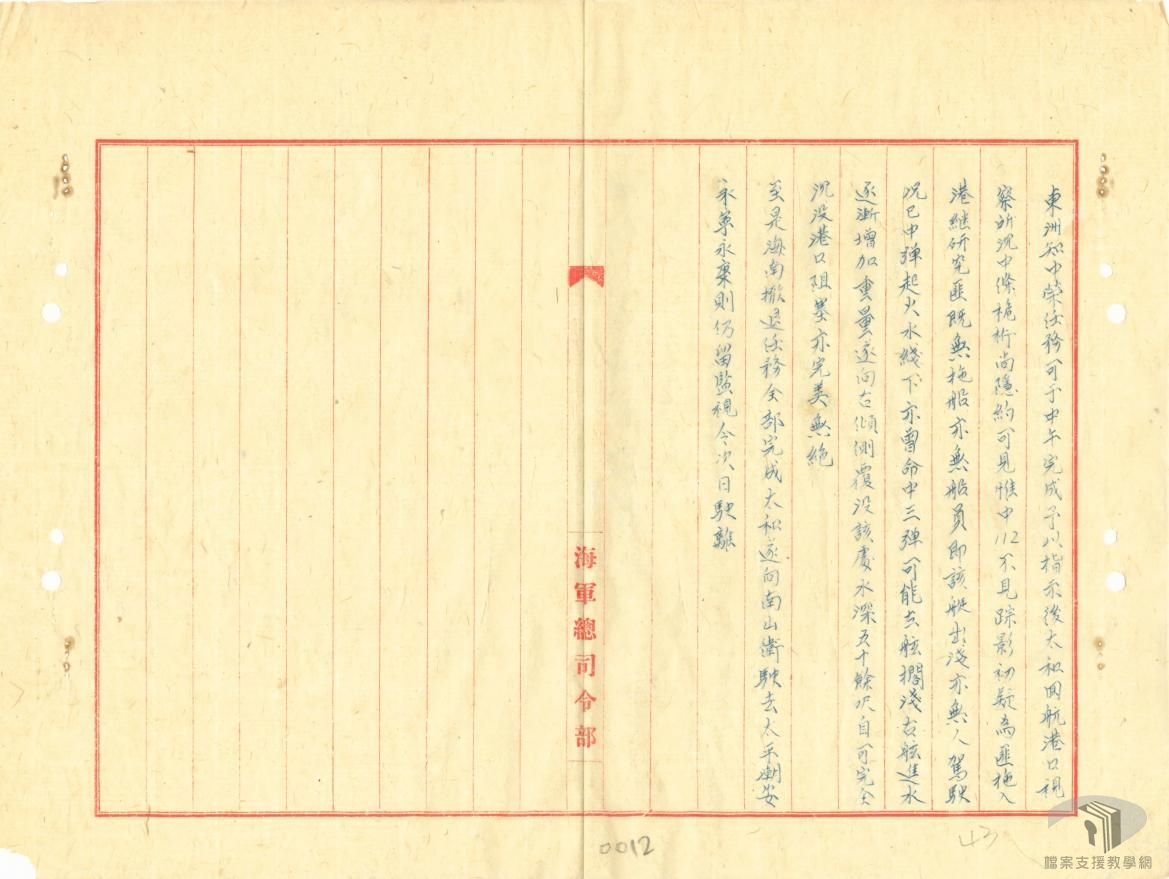 東洲知中榮任務可于中午完成予以指示後太和回航港口視
察所沉中條桅桁尚隱約可見惟中112不見踪影初疑為匪拖入
港繼研究匪既無拖船亦無船員即該艇出淺亦無人駕駛
況已中彈起火水綫下亦曾命中三彈可能左舷擱淺右舷進水
逐漸增加重量遂向右傾側覆沒該處水深五十餘呎自可完全
沉没港口阻塞亦完美無絶
至是海南撤退任務全部完成太和遂向南山衛駛去太平潮安
永華永康則仍留監視令次日駛離
海軍總司令部
0012
43
檔案支援教學網